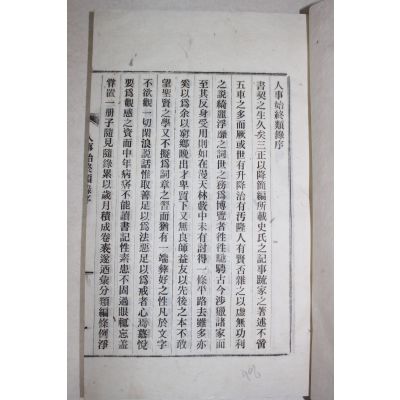 人事始終類錄序
書契之生久矣三正以降簡編所載史氏之記事䟽家之著述不啻
五車之多而厥或世有升降治有汚隆人有賢否雜之以虛無功利
之說綺麗浮靡之詞世之務爲博覽者徃徃馳騁古今涉獵諸家而
至其反身受用則如在漫天林藪中未有討得一條平路去雖多亦
奚以爲余以窮鄉晚出才卑質下又無良師益友以先後之本不敢
望聖賢之學又不擬爲詞章之習而猶有一端彝好之性凡於文字
不欲觀一切閑浪說話惟取善足以爲法惡足以爲戒者心焉慕悅
要爲觀感之資而中年病
不能讀書記性素患不固過眼輒忘盖
甞置一册子隨見隨錄累以歲月積成卷袠遂迺彙分類編條例淨
人事始終類錄序